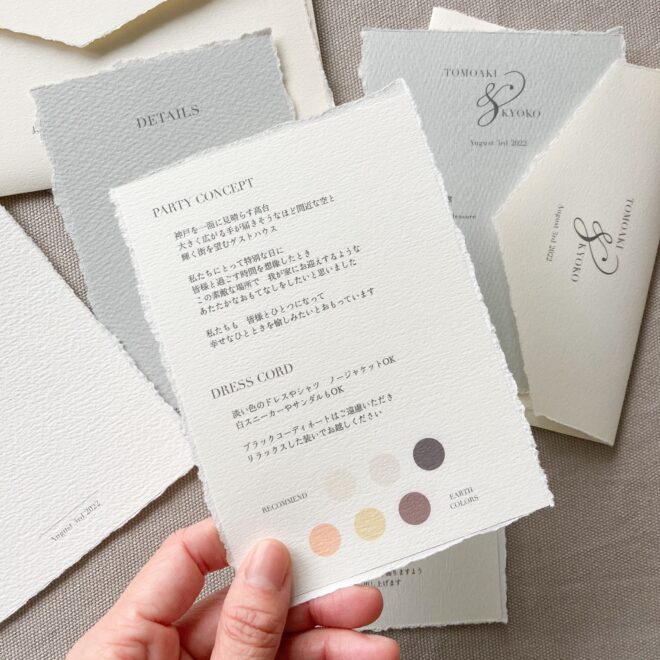 DETAILS
TOMOAKI
&
KYOKO
August 3rd 2022
PARTY CONCEPT
神戸を一面に見晴らす高台
大きく広がる手が届きそうなほど間近な空と
輝く街を望むゲストハウス
私たちにとって特別な日に
皆様と過ごす時間を想像したとき
この素敵な場所で 我が家にお迎えするような
あたたかなおもてなしをしたいと思いました
私たちも 皆様とひとつになって
幸せなひとときを愉しみたいとおもっています
DRESS CORD
淡い色のドレスやシャツ ノージャケットOK
白スニーカーやサンダルもOK
ブラックコーディネートはご遠慮いただき
リラックスした装いでお越しください
RECOMMEND
EARTH
COLORS
TOMOAKI
&
KYOKO
August 3rd 2022
August 3rd 2022